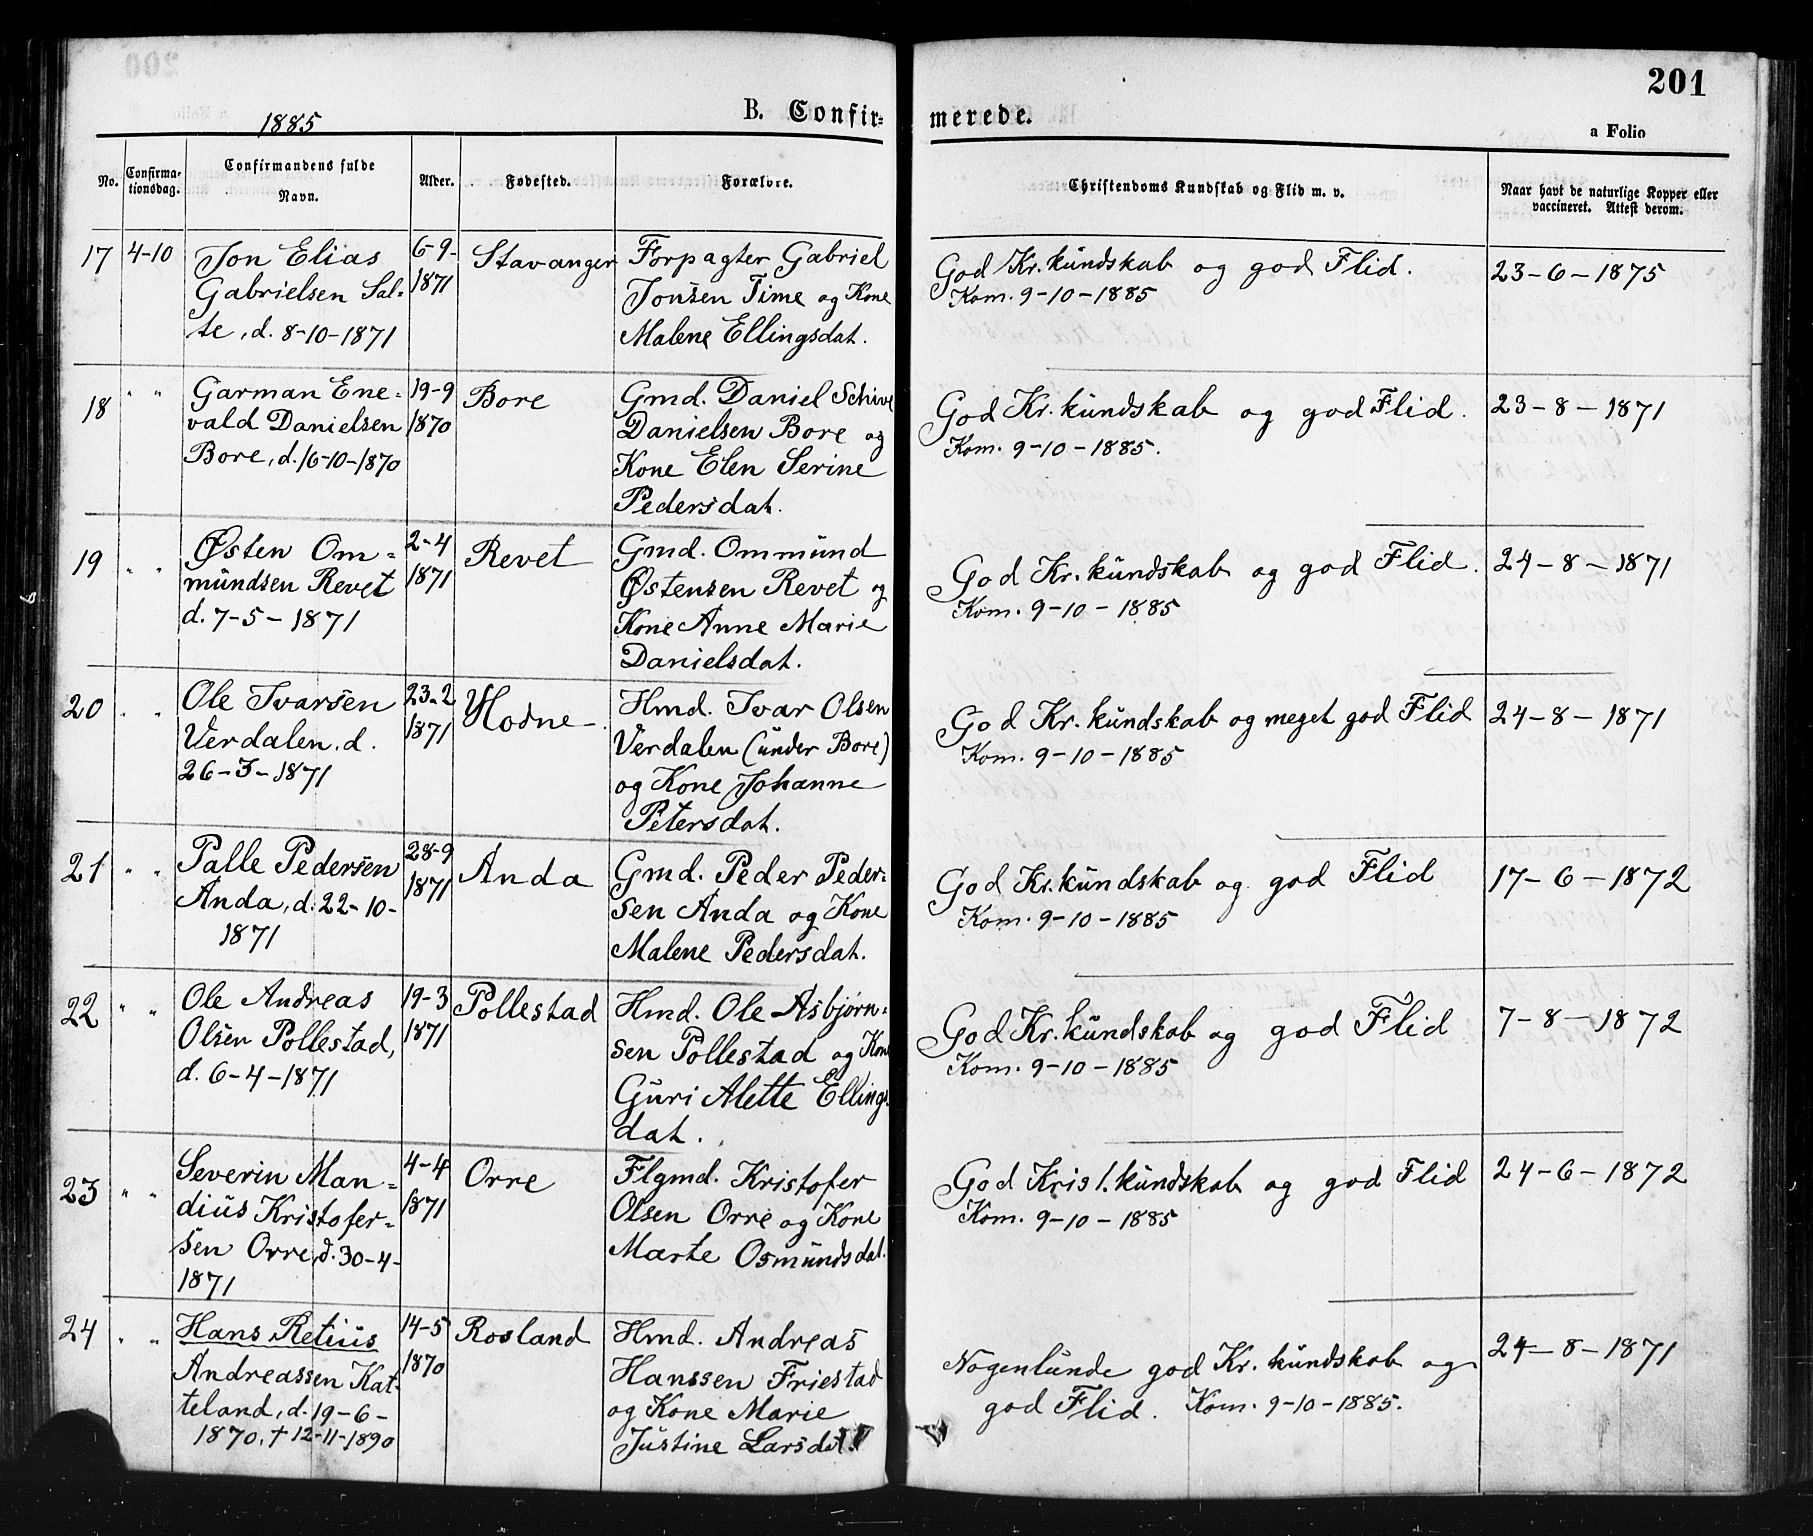 201
1885
B. Confir-
merede.
a Folio
No.
Confirma-
tionsdag.
Confirmandens fulde
Navn.
Alder.
Fødested.
Forældre.
Christendoms Kundskab og Flid m. v.
Naar havt de naturlige Kopper eller
vaccineret. Attest derom.
17 4-10 Jon Elias 6-9- Stavanger Forpagter Gabriel
Gabrielsen Sal- 1871 Jonsen Time og Kone
te, d. 8-10-1871 Malene Ellingsdat.
God Kr. kundskab og god Flid. 23-6-1875
Kom. 9-10-1885
18 " " Garman Ene- 19-9 Bore Gmd. Daniel Schive
vald Danielsen 1870 Danielsen Bore og
Bore, d. 16-10-1870 Kone Elen Serine
Pedersdat.
God Kr. kundskab og god Flid. 23-8-1871
Kom. 9-10-1885.
19 " " Østen Om- 2-4 Revet Gmd. Ommund
mundsen Revet 1871 Østensen Revet og
d. 7-5-1871 Kone Anne Marie
Danielsdat.
God Kr. kundskab og god Flid. 24-8-1871
Kom. 9-10-1885
20 " " Ole Ivarsen 23-2 Hodne Hmd. Ivar Olsen
Verdalen, d. 1871 Verdalen (under Bore)
26-3-1871 og Kone Johanne
Petersdat.
God Kr. kundskab og meget god Flid 24-8-1871
Kom. 9-10-1885
21 " " Palle Pedersen 28-9 Anda Gmd. Peder Peder-
Anda, d. 22-10- 1871 sen Anda og Kone
1871 Malene Pedersdat.
God Kr. kundskab og god Flid 17-6-1872
Kom. 9-10-1885
22 " " Ole Andreas 19-3 Pollestad Hmd. Ole Asbjørn-
Olsen Pollestad, 1871 sen Pollestad og Kone
d. 6-4-1871 Guri Alette Ellings-
dat.
God Kr. kundskab og god Flid 7-8-1872
Kom. 9-10-1885
23 " " Severin Man- 4-4 Orre Flgmd. Kristofer
dius Kristofer- 1871 Olsen Orre og Kone
sen Orre, d. 30-4- Marte Osmundsdat.
1871
God Krist. kundskab og god Flid 24-6-1872
Kom. 9-10-1885
24 " " Hans Retius 14-5 Rosland Hmd. Andreas
Andreassen Kat- 1870 Hanssen Friestad
teland, d. 19-6- og Kone Marie
1870, † 12-11-1890 Justine Larsdat.
Nogenlunde god Kr. kundskab og 24-8-1871
god Flid. Kom. 9-10-1885.